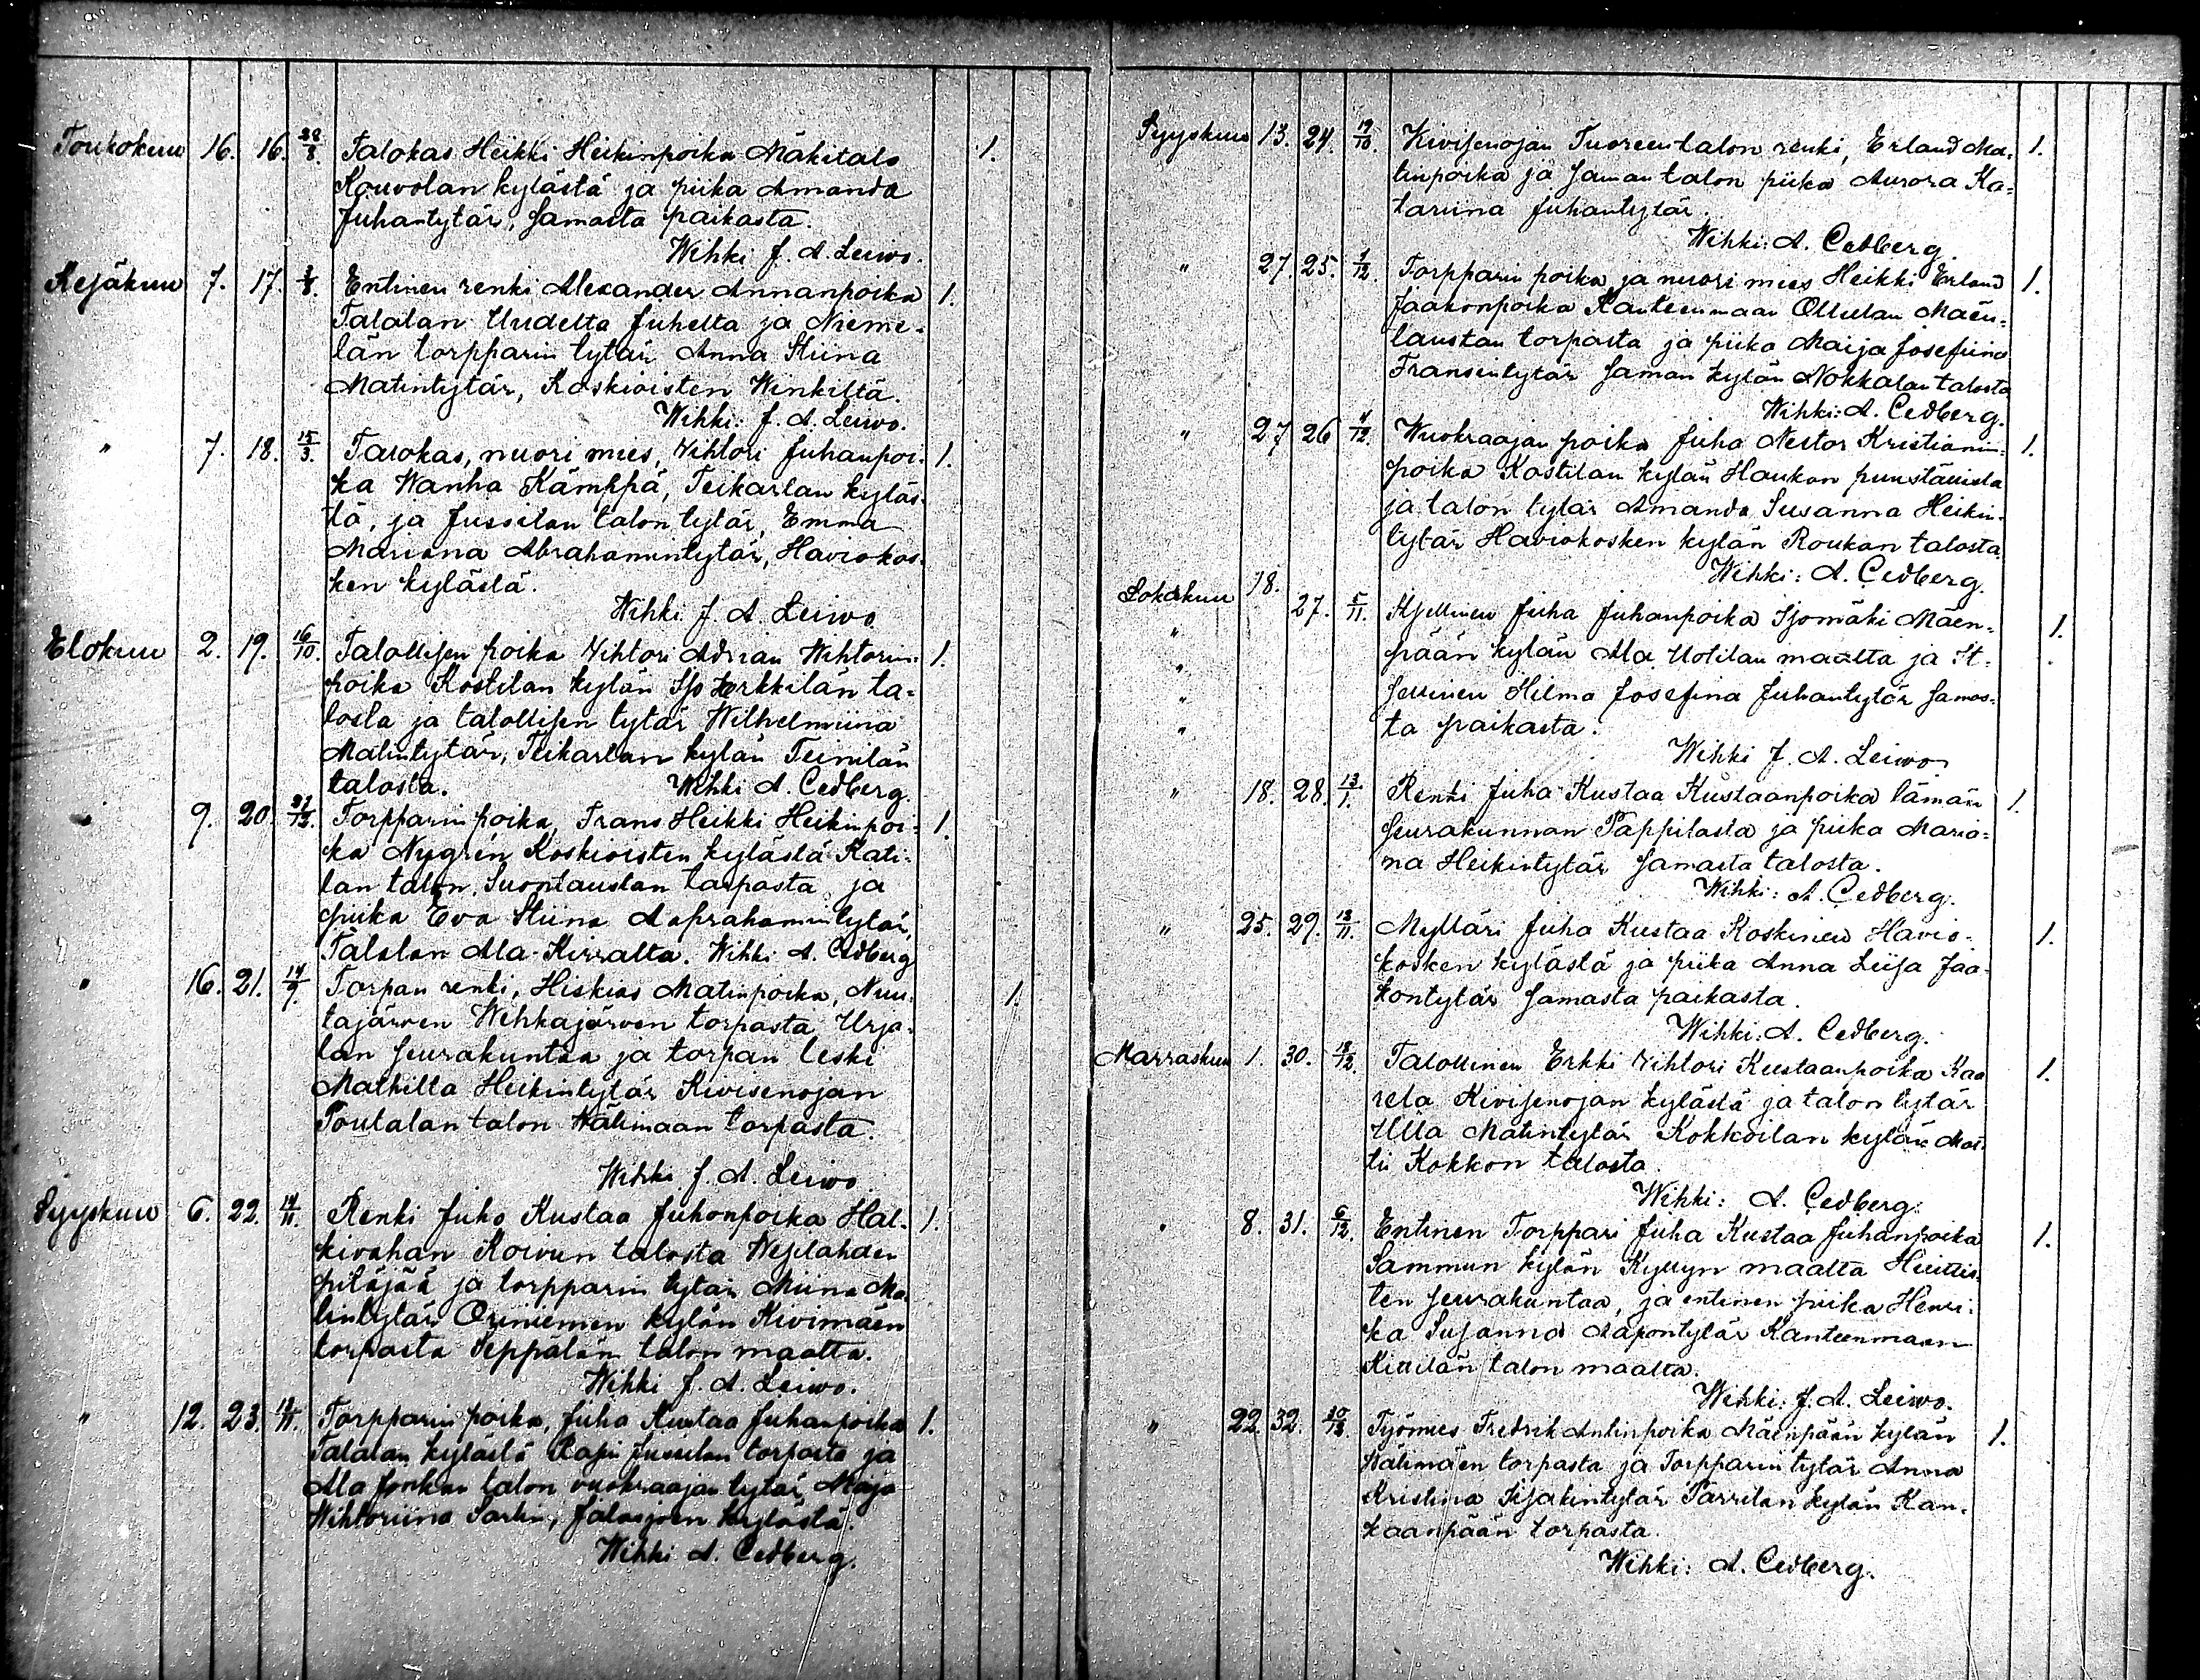 Toukokuu 16. 16. 28/8. Talokas Heikki Heikinpoika Mäkitalo 1.
Kouvolan kylästä ja piika Amanda
Juhantytär, samasta paikasta.
Wihki J. A. Leiwo.
Kesäkuu 7. 17. Entinen renki Alexander Annanpoika 1.
Talalan Uudelta Juhelta ja Nieme-
län torpparin tytär Anna Stiina
Matintytär, Koskioisten Winkiltä.
Wihki: J. A. Leiwo.
" 7. 18. 15/3. Talokas, nuori mies, Vihtori Juhanpoi- 1.
ka Wanha Kämppä, Teikarlan kyläs-
tä, ja Jussilan talon tytär, Emma
Mariana Abrahamintytär, Haviokos-
ken kylästä.
Wihki J. A. Leiwo
Elokuu 2. 19. 16/10. Talollisen poika Vihtori Adrian Wihtorin- 1.
poika Kostilan kylän Iso Erkkilän ta-
losta ja talollisen tytär Wilhelmiina
Matintytär, Teikarlan kylän Teinilän
talosta. Wihki A. Cedberg.
" 9. 20. 31/12. Torpparin poika, Frans Heikki Heikinpoi- 1.
ka Nygrén Koskioisten kylästä Kati-
lan talon, Suontaustan torpasta ja
piika Eva Stiina Aaprahamintytär,
Talalan Ala-Kirralta. Wihki A. Cedberg
" 16. 21. 14/9. Torpan renki, Hiskias Matinpoika, Nuu- 1.
tajärven Wehkajärven torpasta Urja-
lan seurakuntaa ja torpan leski
Mathilta Heikintytär Kivisenojan
Toulalan talon Wälimaan torpasta.
Wihki J. A. Leiwo
Syyskuu 6. 22. 14/11. Renki Juho Kustaa Juhonpoika Hal- 1.
kivahan Koivun talosta Wesilahden
pitäjää ja torpparin tytär Miina Ma-
tintytär Oriniemen kylän Kivimäen
torpasta Seppälän talon maalta.
Wihki J. A. Leiwo.
" 12. 23. Torpparin poika, Juha Kustaa Juhanpoika 1.
Talalan kylästä Rapi Jussilan torpasta ja
Ala Jonkan talon vuokraajan tytär Maija
Wihtoriina Sarlin, Jalasjoen kylästä.
Wihki A. Cedberg.
Syyskuu 13. 24. 19/10. Kivisenojan Tuoreentalon renki, Erland Ma- 1.
tinpoika ja saman talon piika Aurora Ka-
tariina Juhantytär.
Wihki: A. Cedberg.
" 27. 25. 1/12. Torpparin poika ja nuori mies Heikki Erland 1.
Jaakonpoika Kanteenmaan Ollilan Mäen-
laustan torpasta ja piika Maija Josefiina
Fransintytär saman kylän Nokkalan talosta
Wihki: A. Cedberg.
" 27 26 4/12. Wuokraajan poika Juha Nestor Kristianin- 1.
poika Kostilan kylän Haukan puustellista
ja talon tytär Amanda Susanna Heikin-
tytär Haviokosken kylän Roukan talosta.
Wihki: A. Cedberg.
Lokakuu 18. 27. 5/11. Itsellinen Juha Juhanpoika Isomäki Mäen- 1.
" pään kylän Ala Uotilan maalta ja It-
" sellinen Hilma Josefina Juhantytär samas-
" ta paikasta.
Wihki J. A. Leiwo
" 18. 28. 13/1. Renki Juha Kustaa Kustaanpoika tämän 1.
seurakunnan Pappilasta ja piika Maria-
na Heikintytär samasta talosta.
Wihki: A. Cedberg.
" 25. 29. 13/11. Mylläri Juha Kustaa Koskinen Havio- 1.
kosken kylästä ja piika Anna Liisa Jaa-
kontytär samasta paikasta.
Wihki: A. Cedberg.
Marraskuu 1. 30. 13/12. Talollinen Erkki Vihtori Kustaanpoika Kaa 1.
rela Kivisenojan kylästä ja talon tytär
Ulla Matintytär Kokkoilan kylän Mat-
tii Kokkon talosta.
Wihki: A. Cedberg.
" 8. 31. 6/12. Entinen Torppari Juha Kustaa Juhanpoika 1.
Sammun kylän Kyllyn maalta Huittis-
ten seurakuntaa, ja entinen piika Henri-
ka Susanna Aapontytär Kanteenmaan
Kittilän talon maalta.
Wihki: J. A. Leiwo.
" 22. 32. 20/12. Työmies Fredrik Antinpoika Mäenpään kylän 1.
Wälimäen torpasta ja Torpparin tytär Anna
Kristina Iisakintytär Sarrilan kylän Kan-
kaanpään torpasta.
Wihki: A. Cedberg.